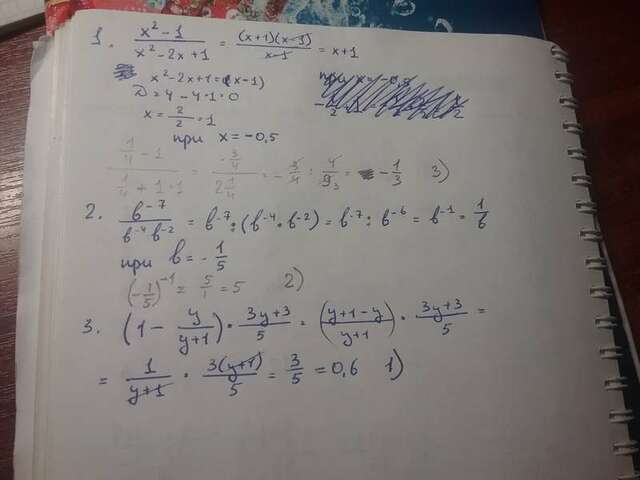 1. (x²-1)/(x²-2x+1) = ((x+1)(x-1))/(x-1) = x+1
x²-2x+1=(x-1)
D=4-4·1·0
x = 2/2 = 1
при x = -0,5
(1/4 - 1)/(1/4 + 1·1) = (-3/4)/(2 1/4) = -3/4 : 4/9₃ = -1/3 3)
2. b⁻⁷/(b⁻⁴b⁻²) = b⁻⁷:(b⁻⁴·b⁻²) = b⁻⁷:b⁻⁶ = b⁻¹ = 1/b
при b = -1/5
(-1/5)⁻¹ = 5/1 = 5 2)
3. (1 - y/(y+1)) · (3y+3)/5 = ((y+1-y)/(y+1)) · (3y+3)/5 =
= 1/(y+1) · 3(y+1)/5 = 3/5 = 0,6 1)